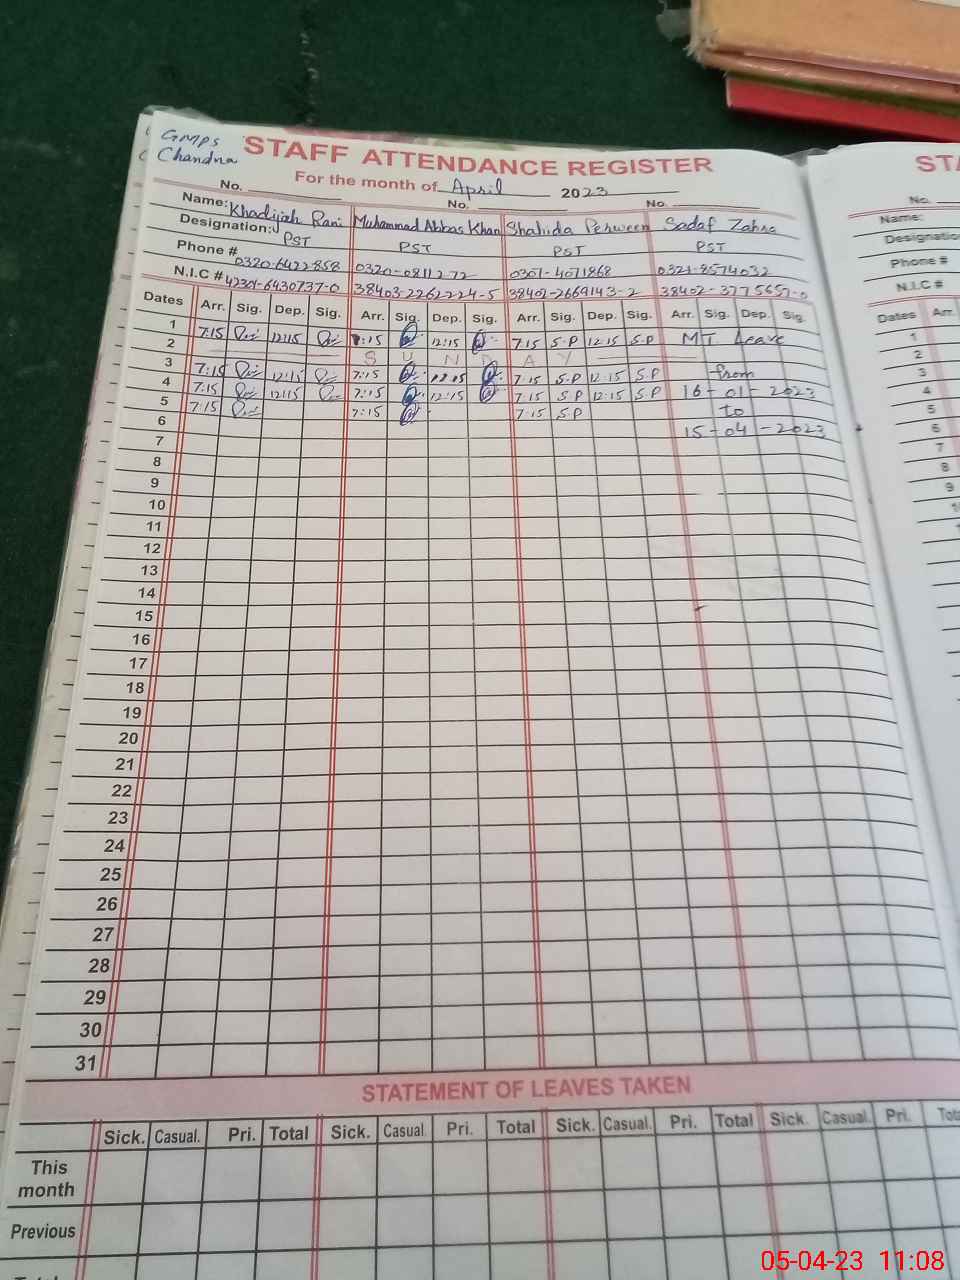 GMPS
Chandna
STAFF ATTENDANCE REGISTER
For the month of April 2023
No. No. No.
Name: Khadijah Rani Muhammad Abbas Khan Shahida Perween Sadaf Zahra
Designation: PST PST PST PST
Phone # 0320-6422858 0320-0811272 0301-4071868 0321-8574032
N.I.C # 42301-6430737-0 38403-2262224-5 38402-2669143-2 38402-3775657-0
Dates Arr. Sig. Dep. Sig. Arr. Sig. Dep. Sig. Arr. Sig. Dep. Sig. Arr. Sig. Dep. Sig.
1 7:15 12:15 7:15 12:15 7:15 S.P 12:15 S.P MT Leave
2 S U N D A Y
3 7:15 12:15 7:15 7:15 S.P 12:15 S.P from
4 7:15 12:15 7:15 12:15 7:15 S.P 12:15 S.P 16-01-2023
5 7:15 7:15 7:15 S.P to
6 15-04-2023
7
8
9
10
11
12
13
14
15
16
17
18
19
20
21
22
23
24
25
26
27
28
29
30
31
STATEMENT OF LEAVES TAKEN
Sick. Casual. Pri. Total Sick. Casual. Pri. Total Sick. Casual. Pri. Total Sick. Casual. Pri.
This
month
Previous
STA
No.
Name:
Designatio
Phone #
N.I.C #
Dates Arr.
1
2
3
4
5
6
7
8
9
05-04-23 11:08